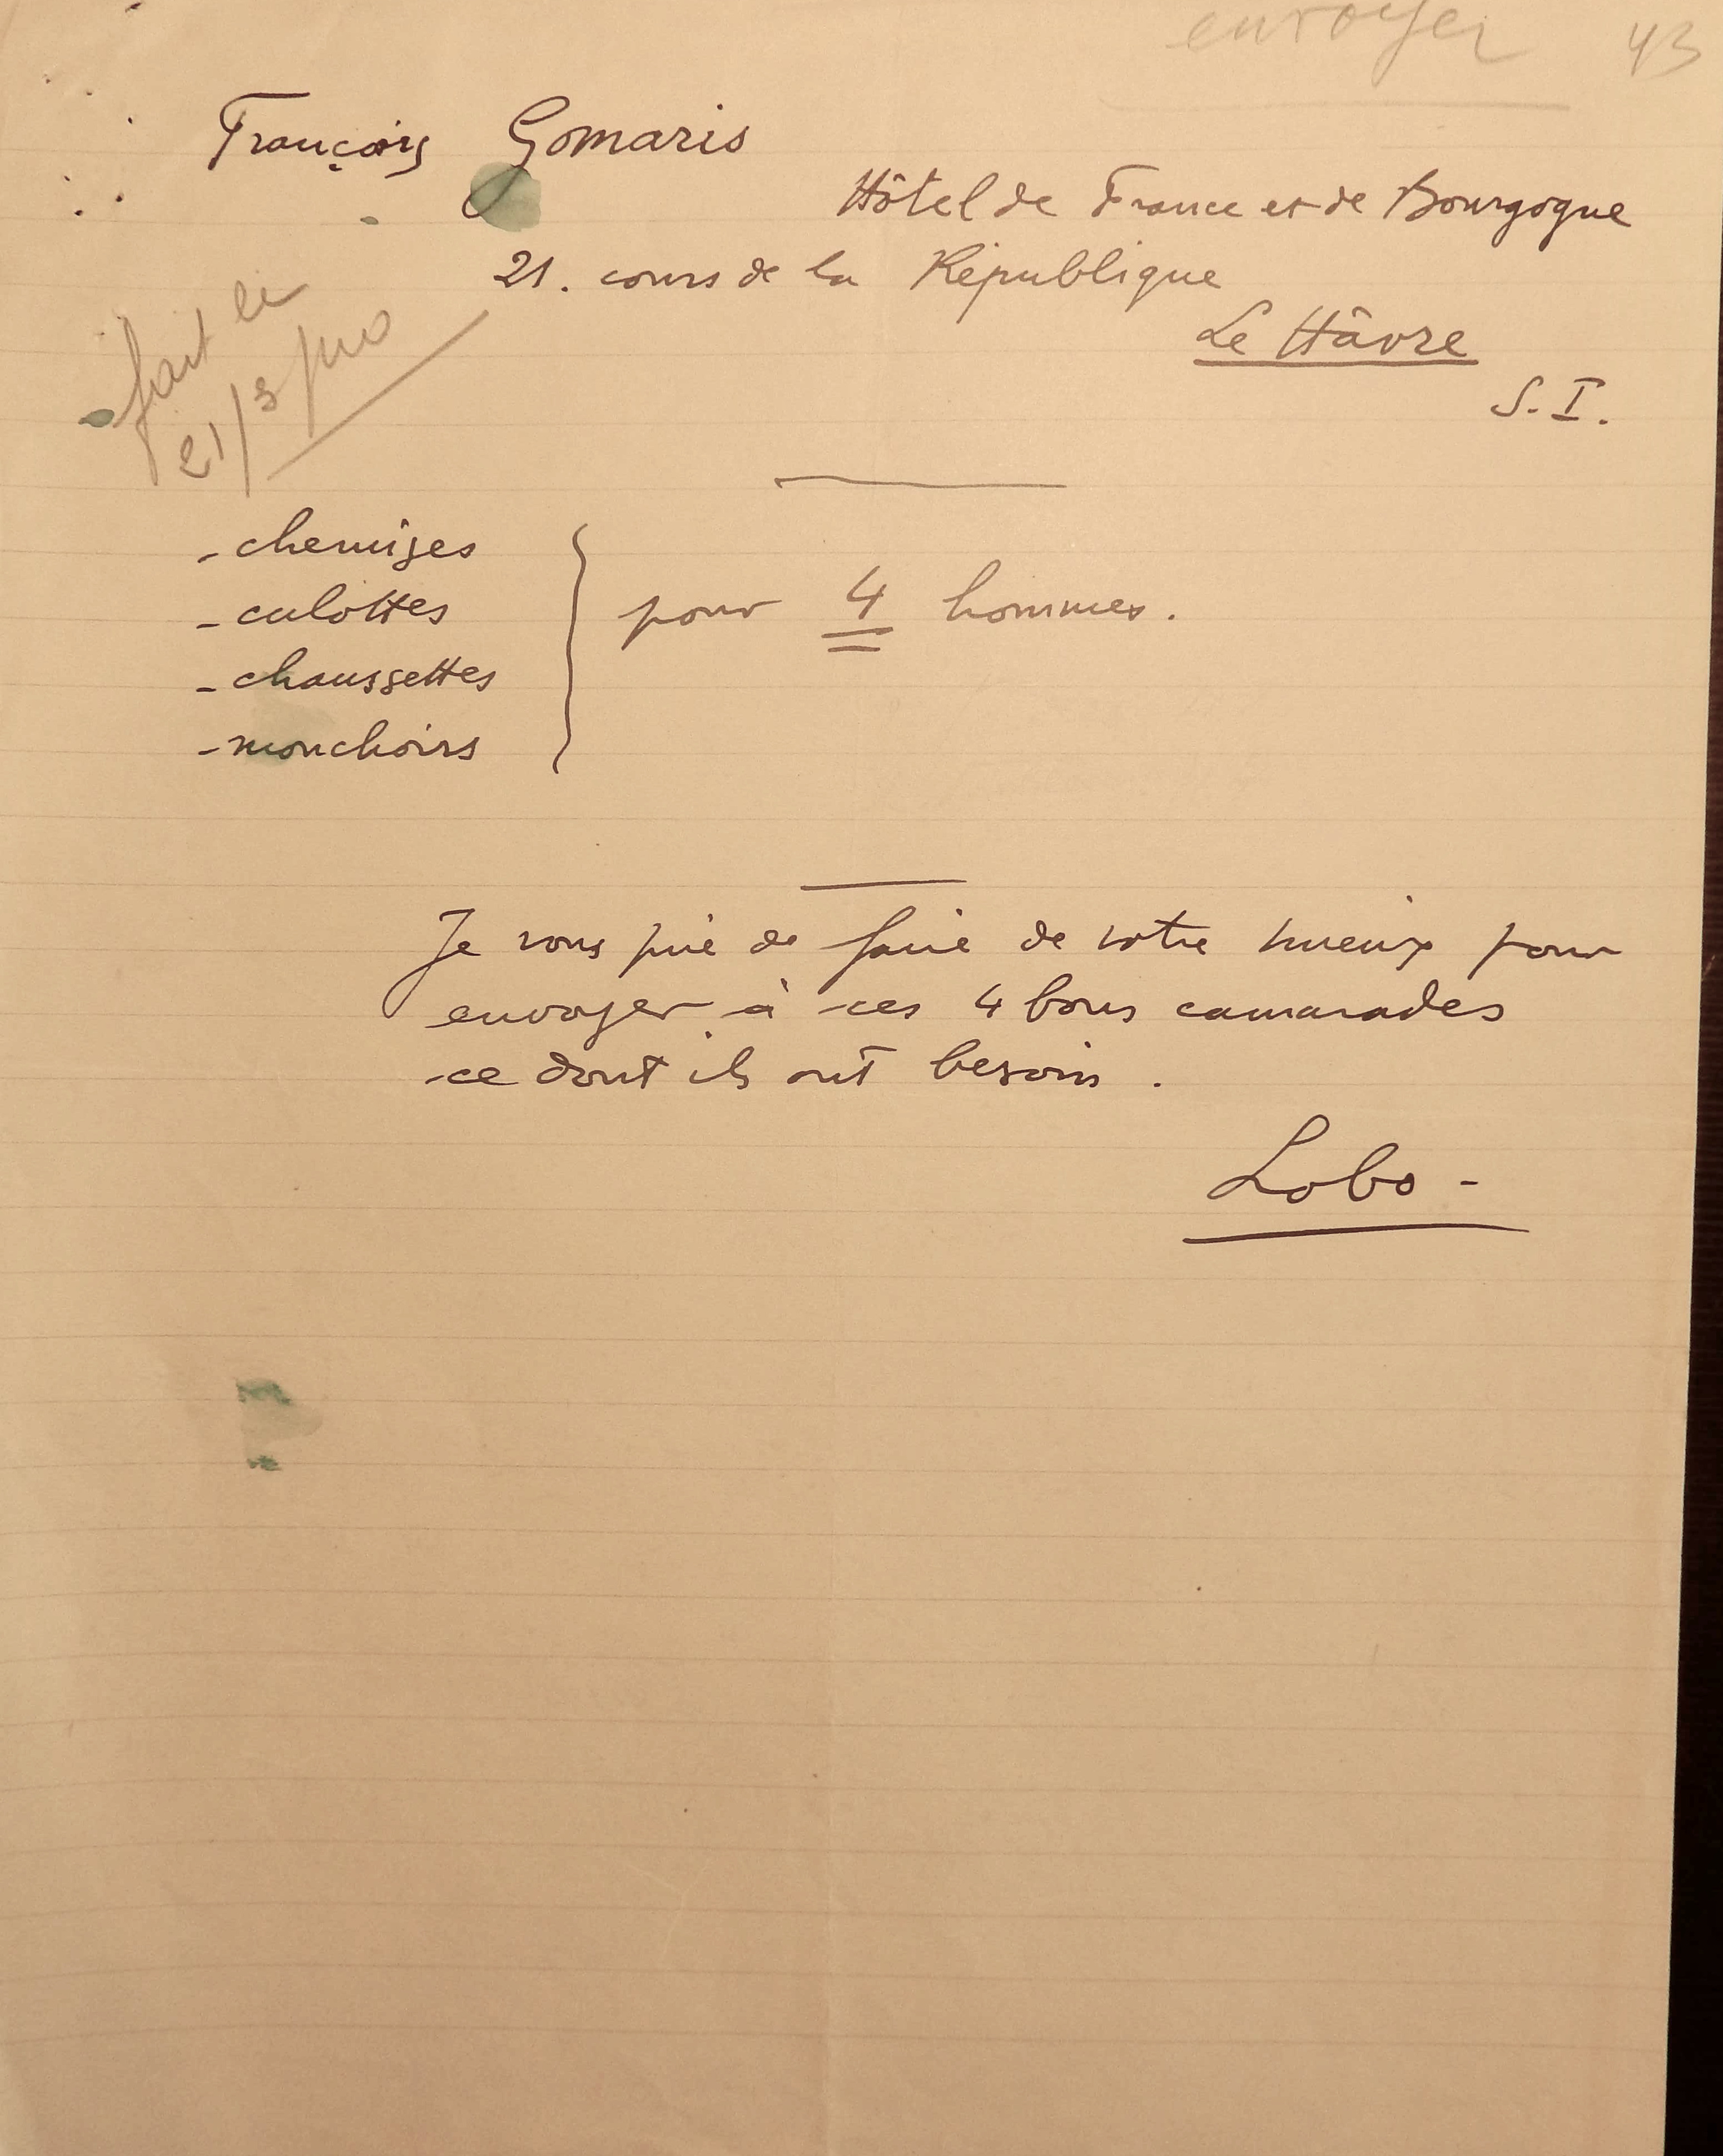 envoyer 43
François Gomaris
Hôtel de France et de Bourgogne
21. cours de la République
Le Hâvre
S. I.
fait le
21/3
- chemises
- culottes
- chaussettes
- mouchoirs
pour 4 hommes.
Je vous prie de faire de votre mieux pour
envoyer à ces 4 bons camarades
ce dont ils ont besoin.
Lobo -